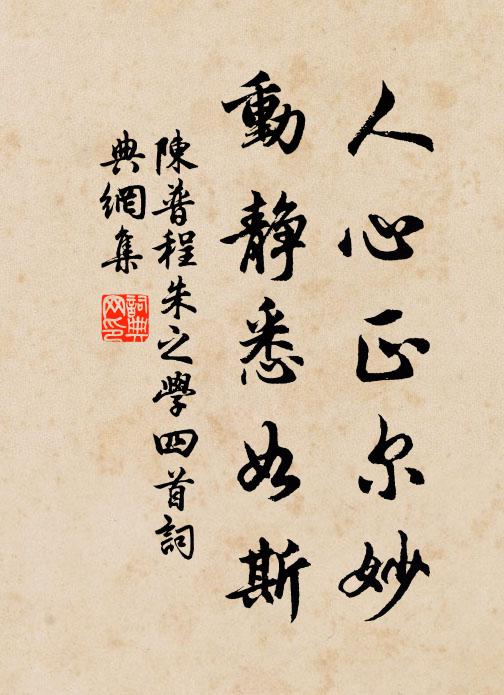 人心正尔妙
動静悉如斯
陳普程朱之學四首詞
典網集
詞典网印